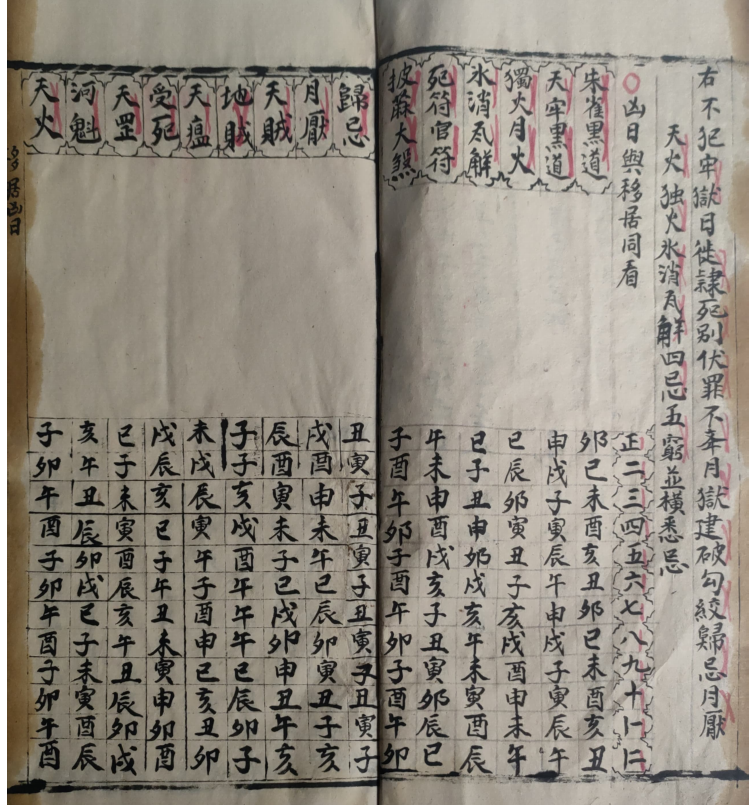 右不犯牢獄日徙隸死别伏罪不辜月獄建破勾絞歸忌月厭
天火独火氷消瓦解四忌五窮並橫悉忌
〇凶日與移居同看
正二三四五六七八九十十一十二
朱雀黑道 卯巳未酉亥丑卯巳未酉亥丑
天牢黑道 申戌子寅辰午申戌子寅辰午
獨火月火 巳辰卯寅丑子亥戌酉申未午
氷消瓦解 巳子丑申卯戌亥午未寅酉辰
死符官符 午未申酉戌亥子丑寅卯辰巳
披蔴大煞 子酉午卯子酉午卯子酉午卯
歸忌 丑寅子丑寅子丑寅子丑寅子
月厭 戌酉申未午巳辰卯寅丑子亥
天賊 辰酉寅未子巳戌卯申丑午亥
地賊 子子亥戌酉午午午巳辰卯子
天瘟 未戌辰寅午子酉申巳亥丑卯
受死 戌辰亥巳子午丑未寅申卯酉
天罡 巳子未寅酉辰亥午丑辰卯戌
河魁 亥午丑辰卯戌巳子未寅酉辰
天火 子卯午酉子卯午酉子卯午酉
移居凶日